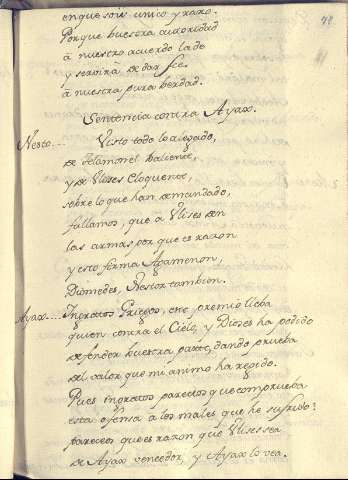 en que sois unico y raro.
Porque buestra autoridad
à nuestro acuerdo la dè
y servirà de dar fee
à nuestra pura berdad.
Sentencia contra Ayax.
Nesto.... Visto todo lo alegado,
de Telamon el baliente,
y de Vlises Eloquente,
sobre lo que han demandado,
fallamos, que à Vlises den
las armas por que es razon
y esto firma Agamenon,
Diomedes, Nestor tambien.
Ayax.... Ingratos Griegos, este premio lleba
quien contra el Cielo, y Dioses ha podido
defender buestra parte, dando prueba
del valor que mi animo ha regido.
Pues ingratos pareceos que comprueba
esta ofensa a los males que he sufrido?
pareceos que es razon que Vlises sea
de Ayax vencedor, y Ayax lo vea.